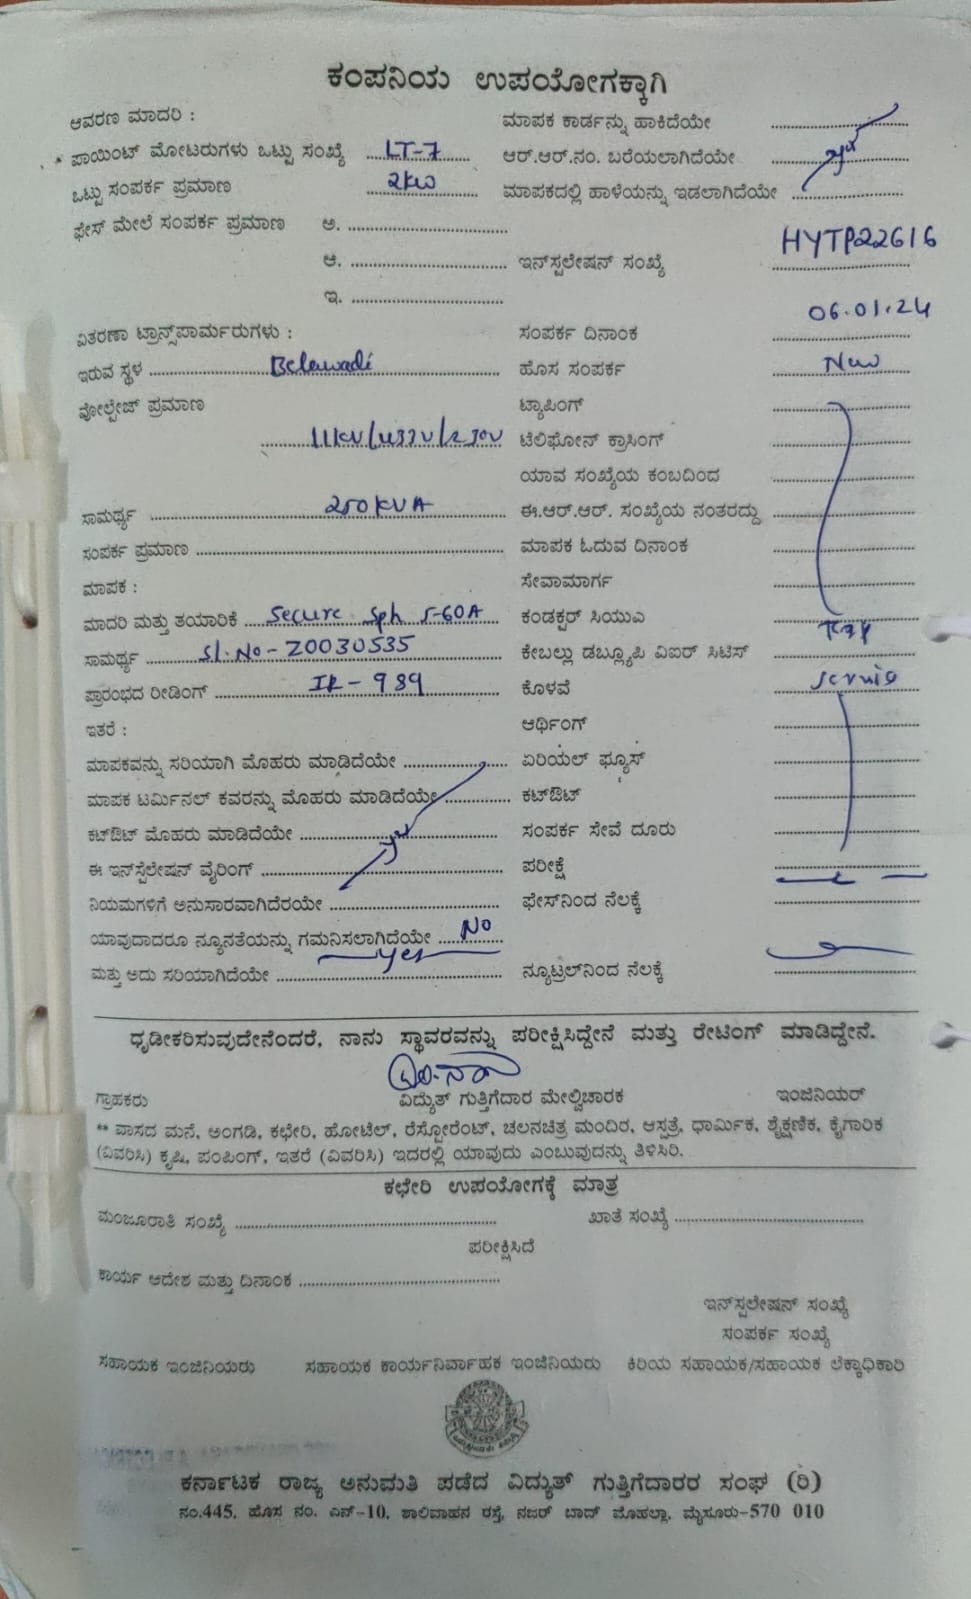 ಕಂಪನಿಯ ಉಪಯೋಗಕ್ಕಾಗಿ
ಆವರಣ ಮಾದರಿ : ಮಾಪಕ ಕಾರ್ಡನ್ನು ಹಾಕಿದೆಯೇ
* ಪಾಯಿಂಟ್ ಮೋಟರುಗಳು ಒಟ್ಟು ಸಂಖ್ಯೆ LT-7 ಆರ್.ಆರ್.ನಂ. ಬರೆಯಲಾಗಿದೆಯೇ
ಒಟ್ಟು ಸಂಪರ್ಕ ಪ್ರಮಾಣ 2KW ಮಾಪಕದಲ್ಲಿ ಹಾಳೆಯನ್ನು ಇಡಲಾಗಿದೆಯೇ
ಫೇಸ್ ಮೇಲೆ ಸಂಪರ್ಕ ಪ್ರಮಾಣ ಅ.
ಆ. ಇನ್‌ಸ್ಪಲೇಷನ್ ಸಂಖ್ಯೆ HYTP22616
ಇ.
ವಿತರಣಾ ಟ್ರಾನ್ಸ್‌ಪಾರ್ಮರುಗಳು : ಸಂಪರ್ಕ ದಿನಾಂಕ 06.01.24
ಇರುವ ಸ್ಥಳ Belawadi ಹೊಸ ಸಂಪರ್ಕ New
ವೋಲ್ಟೇಜ್ ಪ್ರಮಾಣ ಟ್ಯಾಪಿಂಗ್
11KV/433V/230V ಟೆಲಿಫೋನ್ ಕ್ರಾಸಿಂಗ್
ಯಾವ ಸಂಖ್ಯೆಯ ಕಂಬದಿಂದ
ಸಾಮರ್ಥ್ಯ 250KVA ಈ.ಆರ್.ಆರ್. ಸಂಖ್ಯೆಯ ನಂತರದ್ದು
ಸಂಪರ್ಕ ಪ್ರಮಾಣ ಮಾಪಕ ಓದುವ ದಿನಾಂಕ
ಮಾಪಕ : ಸೇವಾಮಾರ್ಗ
ಮಾದರಿ ಮತ್ತು ತಯಾರಿಕೆ Secure Sph 5-60A ಕಂಡಕ್ಟರ್ ಸಿಯುಎ
ಸಾಮರ್ಥ್ಯ Sl.No-Z0030535 ಕೇಬಲ್ಲು ಡಬ್ಲ್ಯೂಪಿ ವಿಐರ್ ಸಿಟಿಸ್
ಪ್ರಾರಂಭದ ರೀಡಿಂಗ್ IR-989 ಕೊಳವೆ
ಇತರೆ : ಆರ್ಥಿಂಗ್
ಮಾಪಕವನ್ನು ಸರಿಯಾಗಿ ಮೊಹರು ಮಾಡಿದೆಯೇ ಏರಿಯಲ್ ಫ್ಯೂಸ್
ಮಾಪಕ ಟರ್ಮಿನಲ್ ಕವರನ್ನು ಮೊಹರು ಮಾಡಿದೆಯೇ ಕಟ್‌ಔಟ್
ಕಟ್‌ಔಟ್ ಮೊಹರು ಮಾಡಿದೆಯೇ ಸಂಪರ್ಕ ಸೇವೆ ದೂರು
ಈ ಇನ್‌ಸ್ಪೆಲೇಷನ್ ವೈರಿಂಗ್ ಪರೀಕ್ಷೆ
ನಿಯಮಗಳಿಗೆ ಅನುಸಾರವಾಗಿದೆರಯೇ ಫೇಸ್‌ನಿಂದ ನೆಲಕ್ಕೆ
ಯಾವುದಾದರೂ ನ್ಯೂನತೆಯನ್ನು ಗಮನಿಸಲಾಗಿದೆಯೇ No
ಮತ್ತು ಅದು ಸರಿಯಾಗಿದೆಯೇ yes ನ್ಯೂಟ್ರಲ್‌ನಿಂದ ನೆಲಕ್ಕೆ
ಧೃಡೀಕರಿಸುವುದೇನೆಂದರೆ, ನಾನು ಸ್ಥಾವರವನ್ನು ಪರೀಕ್ಷಿಸಿದ್ದೇನೆ ಮತ್ತು ರೇಟಿಂಗ್ ಮಾಡಿದ್ದೇನೆ.
ಗ್ರಾಹಕರು ವಿದ್ಯುತ್ ಗುತ್ತಿಗೆದಾರ ಮೇಲ್ವಿಚಾರಕ ಇಂಜಿನಿಯರ್
** ವಾಸದ ಮನೆ, ಅಂಗಡಿ, ಕಛೇರಿ, ಹೋಟೆಲ್, ರೆಸ್ಟೋರೆಂಟ್, ಚಲನಚಿತ್ರ ಮಂದಿರ, ಆಸ್ಪತ್ರೆ, ಧಾರ್ಮಿಕ, ಶೈಕ್ಷಣಿಕ, ಕೈಗಾರಿಕ
(ವಿವರಿಸಿ) ಕೃಷಿ, ಪಂಪಿಂಗ್, ಇತರೆ (ವಿವರಿಸಿ) ಇದರಲ್ಲಿ ಯಾವುದು ಎಂಬುವುದನ್ನು ತಿಳಿಸಿರಿ.
ಕಛೇರಿ ಉಪಯೋಗಕ್ಕೆ ಮಾತ್ರ
ಮಂಜೂರಾತಿ ಸಂಖ್ಯೆ ಖಾತೆ ಸಂಖ್ಯೆ
ಪರೀಕ್ಷಿಸಿದೆ
ಕಾರ್ಯ ಆದೇಶ ಮತ್ತು ದಿನಾಂಕ
ಇನ್‌ಸ್ಪಲೇಷನ್ ಸಂಖ್ಯೆ
ಸಂಪರ್ಕ ಸಂಖ್ಯೆ
ಸಹಾಯಕ ಇಂಜಿನಿಯರು ಸಹಾಯಕ ಕಾರ್ಯನಿರ್ವಾಹಕ ಇಂಜಿನಿಯರು ಕಿರಿಯ ಸಹಾಯಕ/ಸಹಾಯಕ ಲೆಕ್ಕಾಧಿಕಾರಿ
ಕರ್ನಾಟಕ ರಾಜ್ಯ ಅನುಮತಿ ಪಡೆದ ವಿದ್ಯುತ್ ಗುತ್ತಿಗೆದಾರರ ಸಂಘ (ರಿ)
ನಂ.445, ಹೊಸ ನಂ. ಎನ್-10, ಶಾಲಿವಾಹನ ರಸ್ತೆ, ನಜರ್ ಬಾದ್ ಮೊಹಲ್ಲಾ, ಮೈಸೂರು-570 010